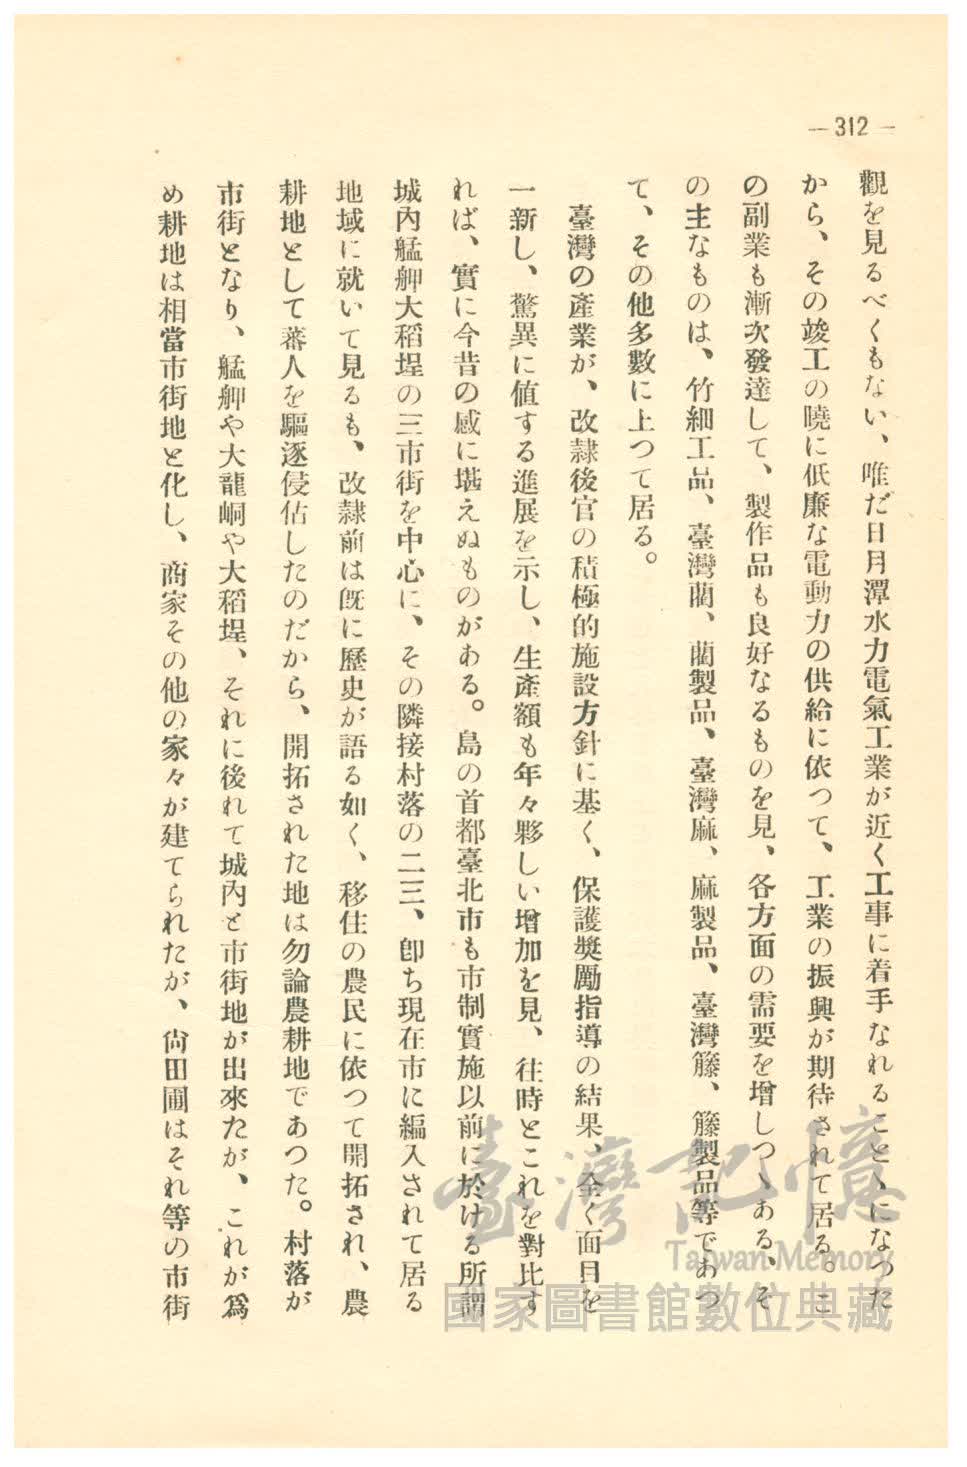 — 312 —
觀を見るべくもない、唯だ日月潭水力電氣工業が近く工事に着手なれることゝになつた
から、その竣工の曉に低廉な電動力の供給に依つて、工業の振興が期待されて居る。こ
の副業も漸次發達して、製作品も良好なるものを見、各方面の需要を增しつゝある、そ
の主なものは、竹細工品、臺灣藺、藺製品、臺灣麻、麻製品、臺灣籐、籐製品等であつ
て、その他多數に上つて居る。
臺灣の產業が、改隷後官の積極的施設方針に基く、保護奬勵指導の結果、全く面目を
一新し、驚異に値する進展を示し、生產額も年々夥しい增加を見、往時とこれを對比す
れば、實に今昔の感に堪えぬものがある。島の首都臺北市も市制實施以前に於ける所謂
城內艋舺大稻埕の三市街を中心に、その隣接村落の二三、卽ち現在市に編入されて居る
地域に就いて見るも、改隷前は既に歷史が語る如く、移住の農民に依つて開拓され、農
耕地として蕃人を驅逐侵佔したのだから、開拓された地は勿論農耕地であつた。村落が
市街となり、艋舺や大龍峒や大稻埕、それに後れて城內と市街地が出來たが、これが爲
め耕地は相當市街地と化し、商家その他の家々が建てられたが、尙田圃はそれ等の市街
臺灣記憶
Taiwan Memory
國家圖書館數位典藏